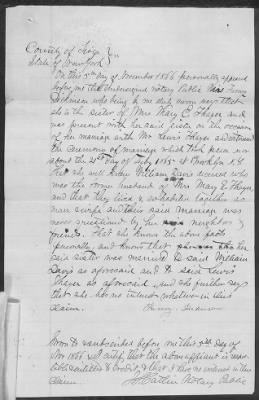 County of Kings
State of New York
On this 5th day of November 1866 personally appeared
before me the undersigned Notary Public Miss Fanny
Dickman who being by me duly sworn says that
she is the sister of Mrs Mary E. Thayer and
was present with her said sister on the occasion
of her marriage with Mr Lewis Thayer and witnessed
the ceremony of marriage which took place on or
about the 2d day of July 1865 at Brooklyn N.Y.
That she well knew William Davis deceased who
was the former husband of Mrs Mary E. Thayer
and that they lived & cohabited together as
man & wife and their said marriage was
never questioned by her neighbors &
friends. That she knows the above facts
personally, and knows that her
said sister was married to said William
Davis as aforesaid and to said Lewis
Thayer as aforesaid, and she further says
that she has no interest whatever in this
claim. Fanny Dickman
Sworn to & subscribed before me this 5th day of
Nov 1866 & I certify that the above affiant is respec-
table & entitled to credit, & that I have no interest in this
claim. Notary Public